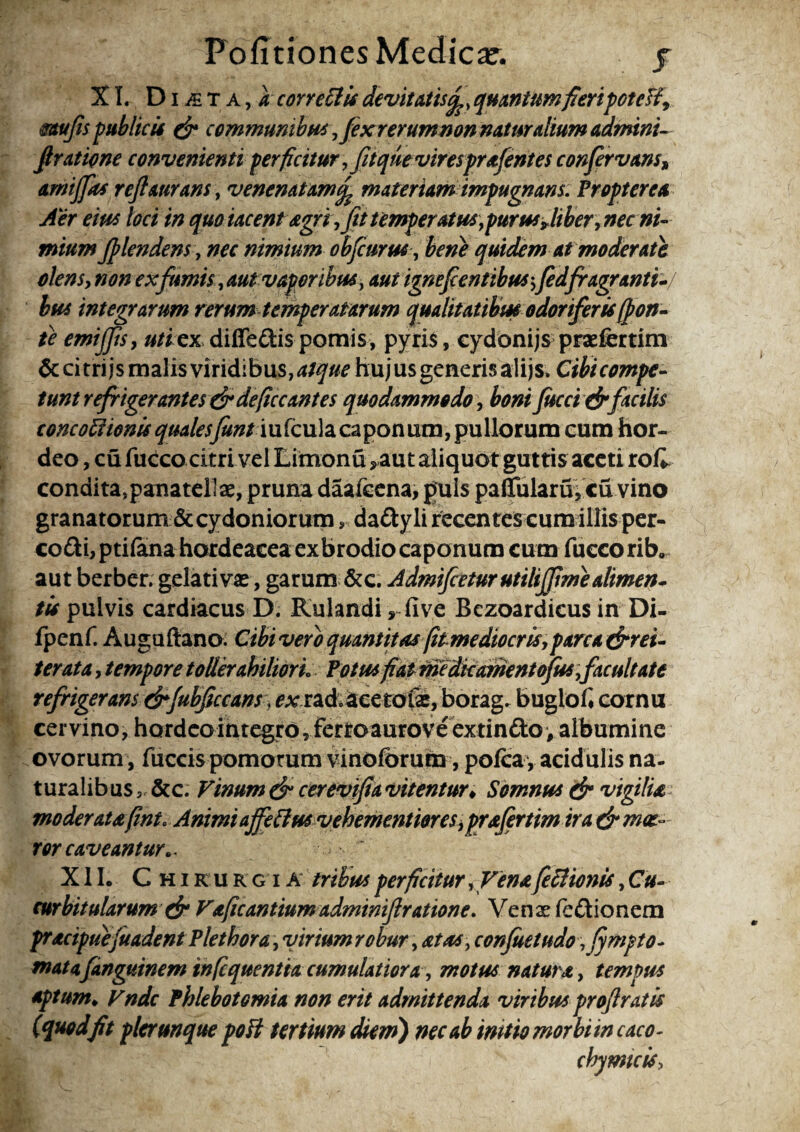 Poſitiones Medicæ. 5
XI. DIÆTA, à correctis devitatisq́;, quantum fieri poteſt,
cauſis publicis & communibus, ſex rerum non naturalium admini-
ſtratione convenienti perficitur, ſitque vires præſentes conſervans,
amiſſas reſtaurans, venenatamq́; materiam impugnans. Propterea
Aër eius loci in quo iacent ægri, ſit temperatus, purus, liber, nec ni-
mium ſplendens, nec nimium obſcurus, benè quidem at moderatè
olens, non ex fumis, aut vaporibus, aut igneſcentibus; ſed fragranti-
bus integrarum rerum temperatarum qualitatibus odoriferis ſpon-
te emiſſis, uti ex diſſectis pomis, pyris, cydonijs præſertim
& citrijs malis viridibus, atque hujus generis alijs. Cibi compe-
tunt refrigerantes & deſiccantes quodammodo, boni ſucci & facilis
concoctionis quales ſunt iuſcula caponum, pullorum cum hor-
deo, cũ ſucco citri vel Limonũ, aut aliquot guttis aceti roſ.
condita, panatellæ, pruna dāaſcena, puls paſſularũ, cũ vino
granatorum & cydoniorum, dactyli recentes cum illis per-
cocti, ptiſana hordeacea ex brodio caponum cum ſucco rib.
aut berber. gelativæ, garum &c. Admiſcetur utiliſſimè alimen-
tis pulvis cardiacus D. Rulandi, ſive Bezoardicus in Di-
ſpenſ. Auguſtano. Cibi verò quantitas ſit mediocris, parca & rei-
terata, tempore tollerabiliori. Potus fiat medicamentoſus, facultate
refrigerans & ſubſiccans, ex rad. acetoſæ, borag. bugloſ. cornu
cervino, hordeo integro, ferro aurove extincto, albumine
ovorum, ſuccis pomorum vinoſorum, poſca, acidulis na-
turalibus, &c. Vinum & cereviſia vitentur. Somnus & vigilia
moderatæ ſint. Animi affectus vehementiores, præſertim ira & mœ-
ror caveantur.
XII. CHIRURGIA tribus perficitur, Venæ ſectionis, Cu-
curbitularum & Vaſicantium adminiſtratione. Venæ ſectionem
præcipuè ſuadent Plethora, virium robur, ætas, conſuetudo, ſympto-
mata ſanguinem inſequentia cumulatiora, motus naturæ, tempus
aptum. Vnde Phlebotomia non erit admittenda viribus proſtratis
(quod fit plerunque poſt tertium diem) nec ab initio morbi in caco-
chymicis,